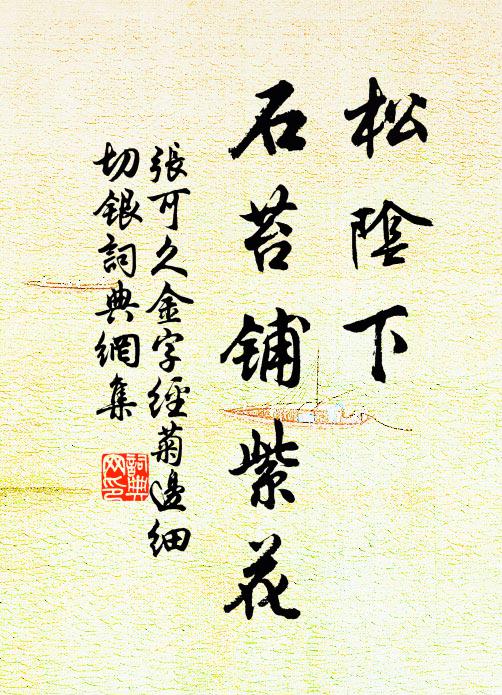 松陰下
石苔鋪紫花
張可久金字經菊邊細
切銀詞典網集
詞典网印